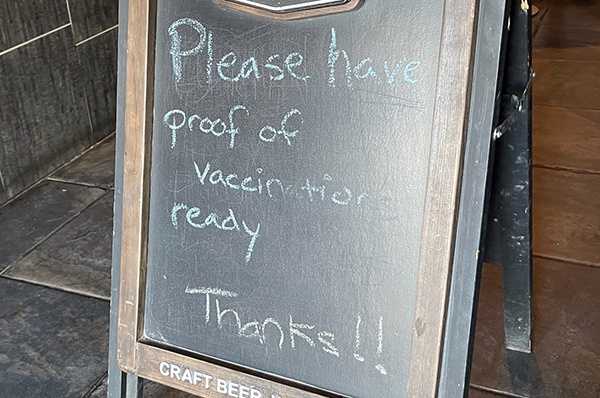 Please have
proof of
vaccination
ready
Thanks!!
CRAFT BEER